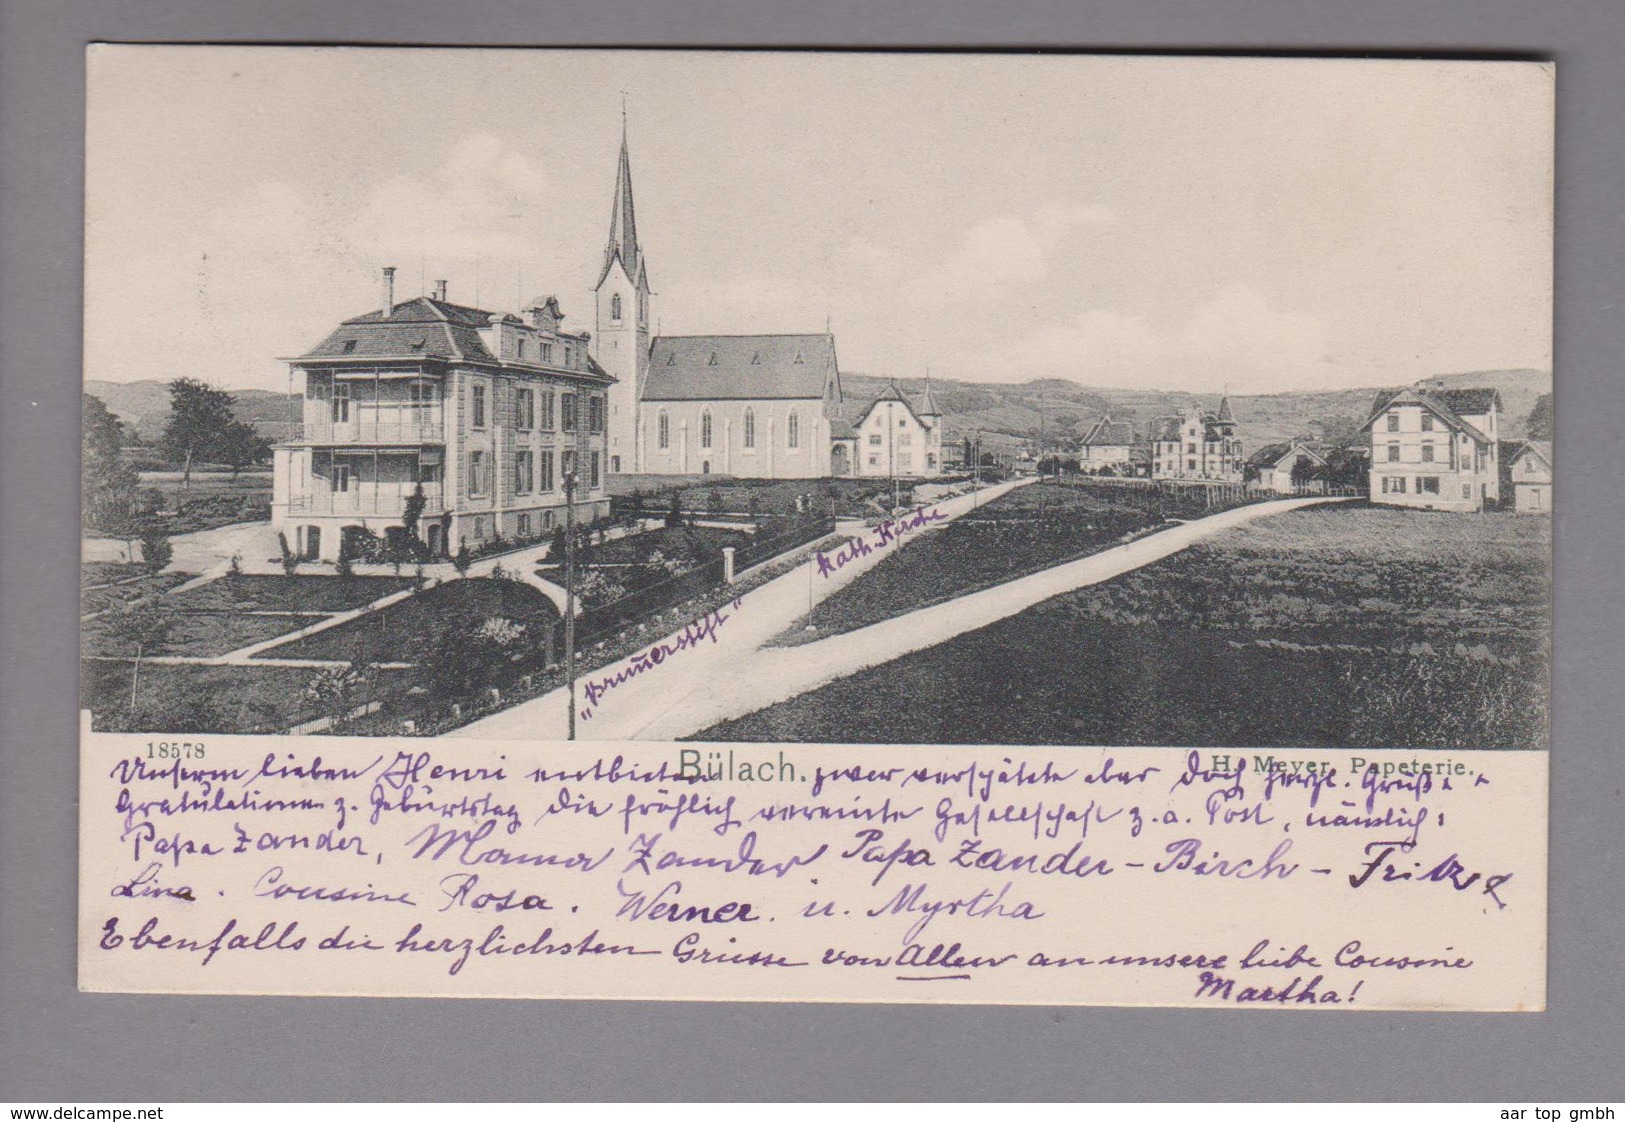 kath. Kirche
„Brunnerstift"
18578
Bülach.
H. Meyer, Papeterie.
Unserm lieben Henri entbieten zwar verspätete aber doch herzl. Grüße +
Gratulationen z. Geburtstag die fröhlich vereinte Gesellschaft z. a. Post, nämlich:
Papa Zander, Mama Zander Papa Zander - Birch - Fritz &
Lina. Cousine Rosa. Werner. u. Myrtha
Ebenfalls die herzlichsten Grüsse von Allen an unsere liebe Cousine
Martha!
www.delcampe.net
aar top gmbh